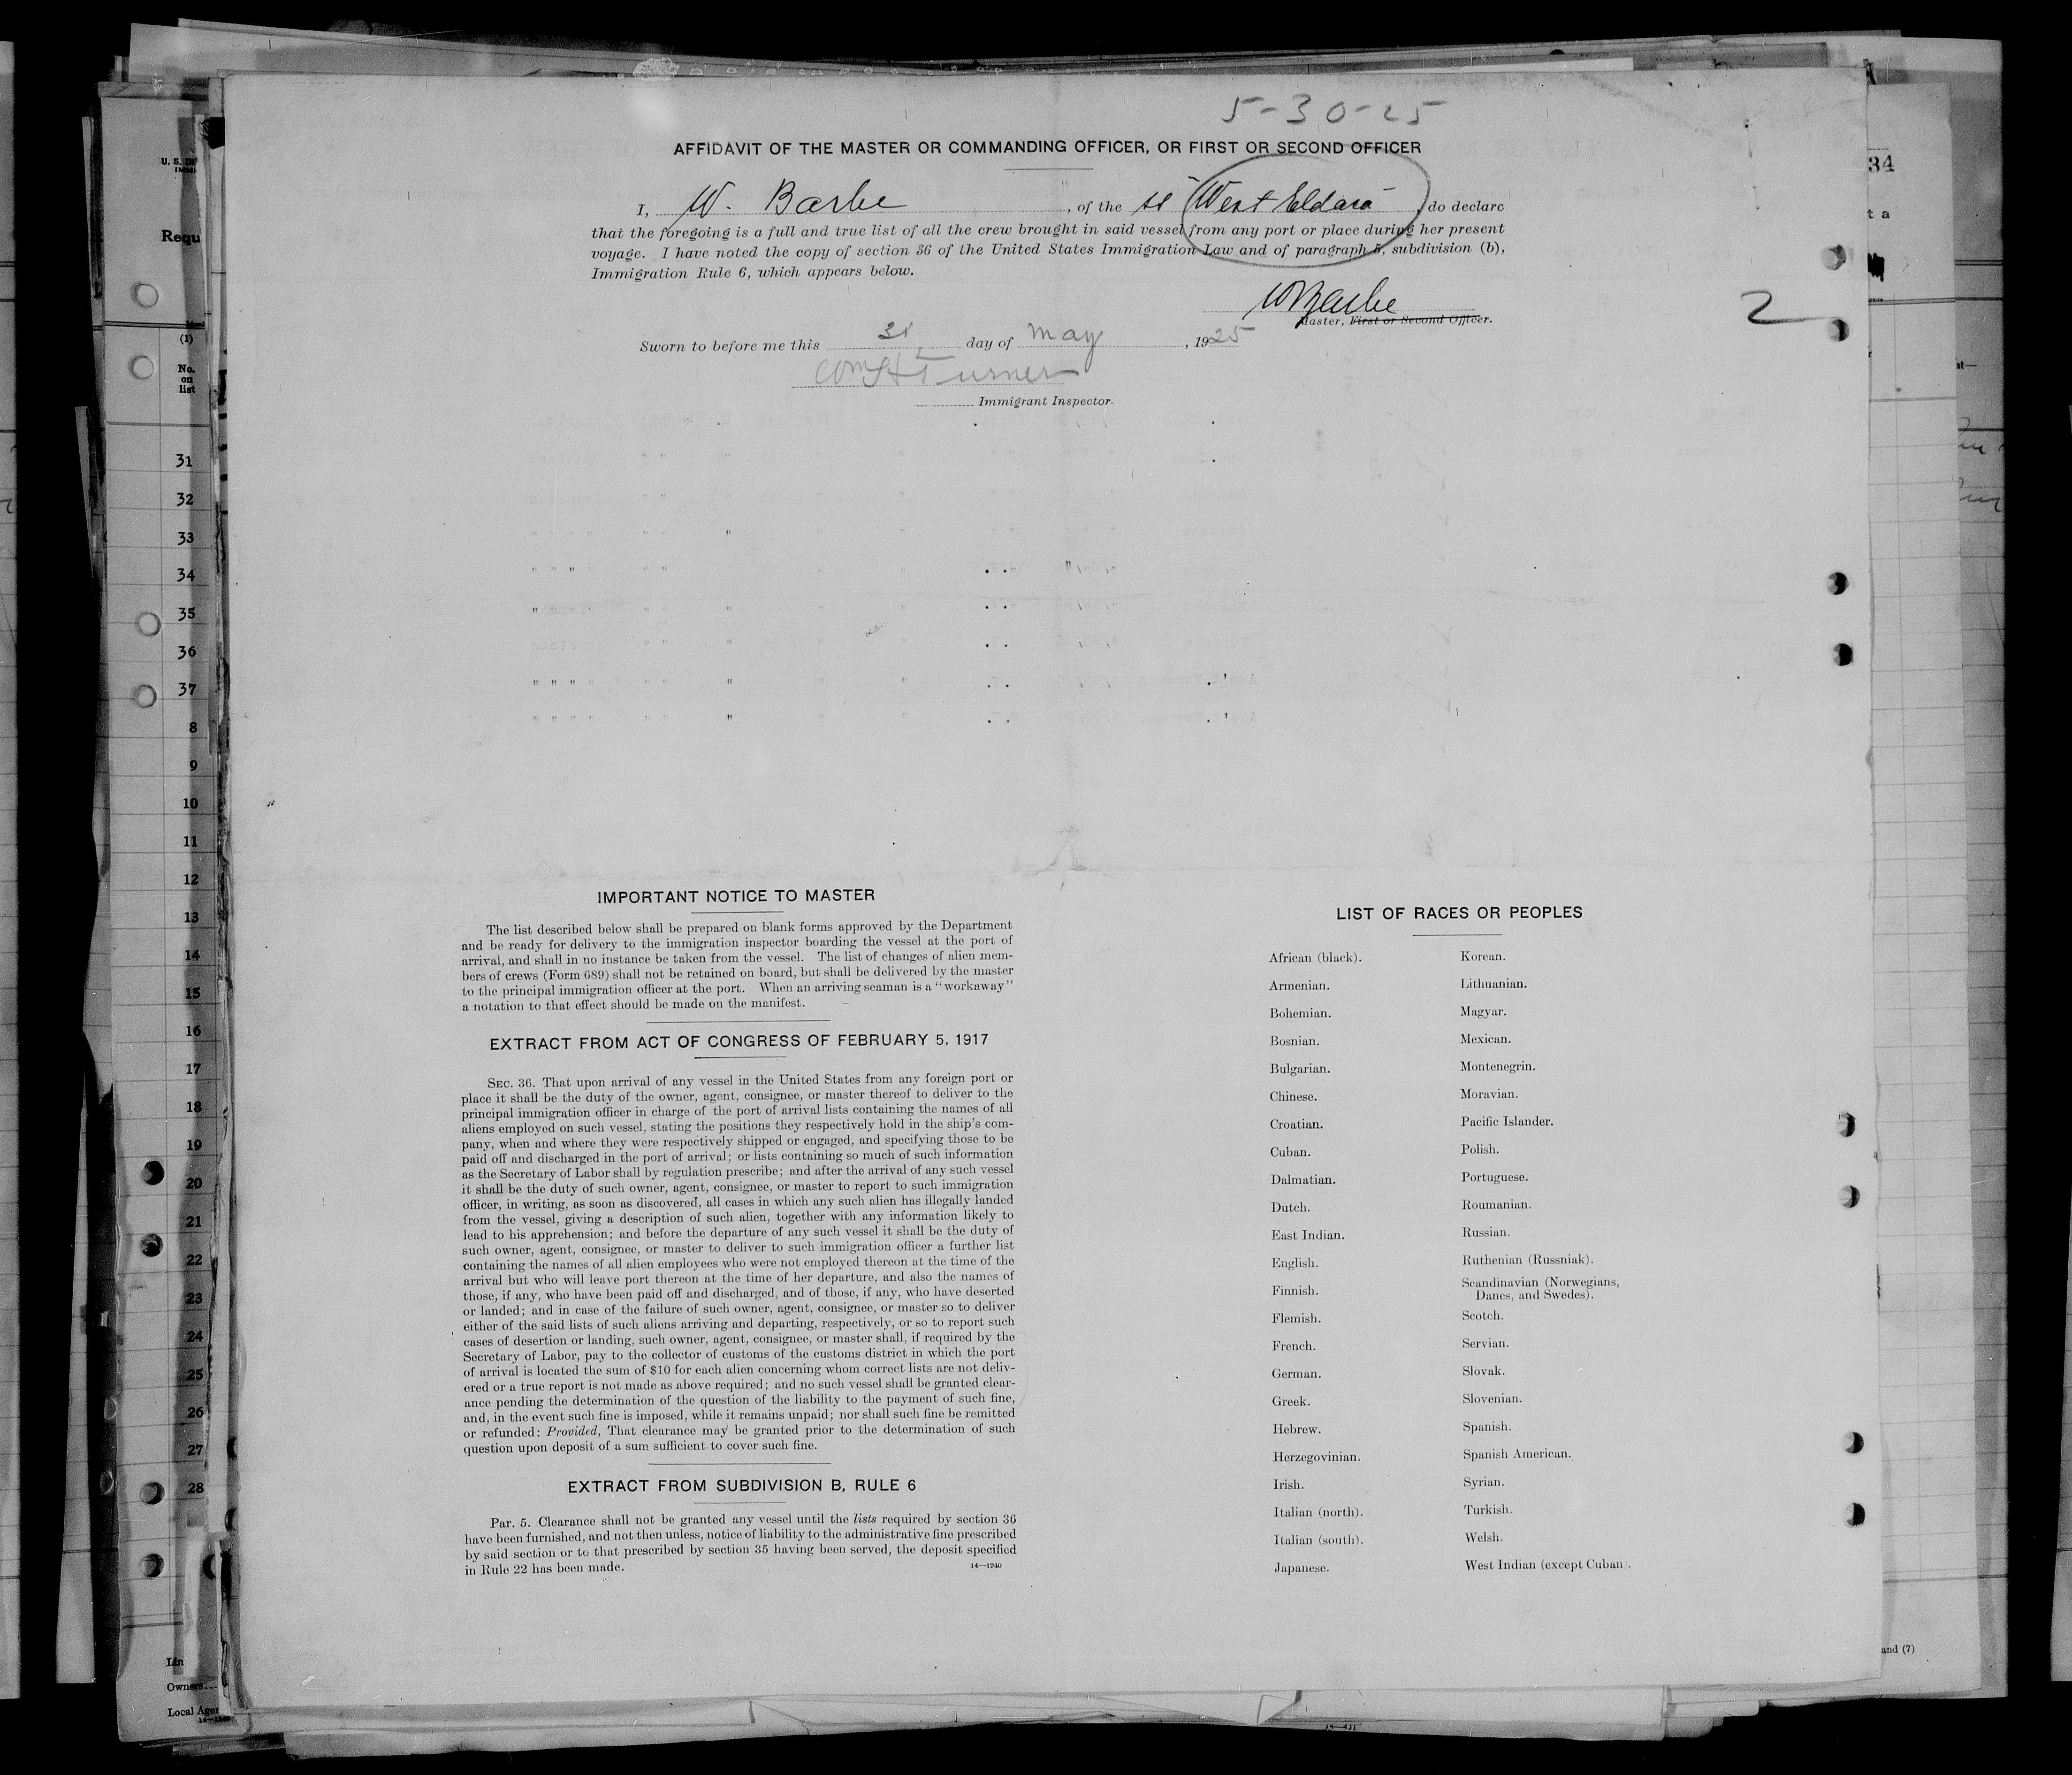 5-30-25
AFFIDAVIT OF THE MASTER OR COMMANDING OFFICER, OR FIRST OR SECOND OFFICER
I, W. Barbe, of the SS "West Eldara" do declare
that the foregoing is a full and true list of all the crew brought in said vessel from any port or place during her present
voyage. I have noted the copy of section 36 of the United States Immigration Law and of paragraph 5, subdivision (b),
Immigration Rule 6, which appears below.
W Barbe
Master, First or Second Officer.
2
Sworn to before me this 31 day of May, 1925
Wm H Turner
Immigrant Inspector.
IMPORTANT NOTICE TO MASTER
The list described below shall be prepared on blank forms approved by the Department
and be ready for delivery to the immigration inspector boarding the vessel at the port of
arrival, and shall in no instance be taken from the vessel. The list of changes of alien mem-
bers of crews (Form 689) shall not be retained on board, but shall be delivered by the master
to the principal immigration officer at the port. When an arriving seaman is a "workaway"
a notation to that effect should be made on the manifest.
EXTRACT FROM ACT OF CONGRESS OF FEBRUARY 5, 1917
SEC. 36. That upon arrival of any vessel in the United States from any foreign port or
place it shall be the duty of the owner, agent, consignee, or master thereof to deliver to the
principal immigration officer in charge of the port of arrival lists containing the names of all
aliens employed on such vessel, stating the positions they respectively hold in the ship's com-
pany, when and where they were respectively shipped or engaged, and specifying those to be
paid off and discharged in the port of arrival; or lists containing so much of such information
as the Secretary of Labor shall by regulation prescribe; and after the arrival of any such vessel
it shall be the duty of such owner, agent, consignee, or master to report to such immigration
officer, in writing, as soon as discovered, all cases in which any such alien has illegally landed
from the vessel, giving a description of such alien, together with any information likely to
lead to his apprehension; and before the departure of any such vessel it shall be the duty of
such owner, agent, consignee, or master to deliver to such immigration officer a further list
containing the names of all alien employees who were not employed thereon at the time of the
arrival but who will leave port thereon at the time of her departure, and also the names of
those, if any, who have been paid off and discharged, and of those, if any, who have deserted
or landed; and in case of the failure of such owner, agent, consignee, or master so to deliver
either of the said lists of such aliens arriving and departing, respectively, or so to report such
cases of desertion or landing, such owner, agent, consignee, or master shall, if required by the
Secretary of Labor, pay to the collector of customs of the customs district in which the port
of arrival is located the sum of $10 for each alien concerning whom correct lists are not deliv-
ered or a true report is not made as above required; and no such vessel shall be granted clear-
ance pending the determination of the question of the liability to the payment of such fine,
and, in the event such fine is imposed, while it remains unpaid; nor shall such fine be remitted
or refunded: Provided, That clearance may be granted prior to the determination of such
question upon deposit of a sum sufficient to cover such fine.
EXTRACT FROM SUBDIVISION B, RULE 6
Par. 5. Clearance shall not be granted any vessel until the lists required by section 36
have been furnished, and not then unless, notice of liability to the administrative fine prescribed
by said section or to that prescribed by section 35 having been served, the deposit specified
in Rule 22 has been made.
14—1240
LIST OF RACES OR PEOPLES
African (black).
Armenian.
Bohemian.
Bosnian.
Bulgarian.
Chinese.
Croatian.
Cuban.
Dalmatian.
Dutch.
East Indian.
English.
Finnish.
Flemish.
French.
German.
Greek.
Hebrew.
Herzegovinian.
Irish.
Italian (north).
Italian (south).
Japanese.
Korean.
Lithuanian.
Magyar.
Mexican.
Montenegrin.
Moravian.
Pacific Islander.
Polish.
Portuguese.
Roumanian.
Russian.
Ruthenian (Russniak).
Scandinavian (Norwegians,
Danes, and Swedes).
Scotch.
Servian.
Slovak.
Slovenian.
Spanish.
Spanish American.
Syrian.
Turkish.
Welsh.
West Indian (except Cuban).
Requ
(1)
No.
on
list
31
32
33
34
35
36
37
8
9
10
11
12
13
14
15
16
17
18
19
20
21
22
23
24
25
26
27
28
Owners
Local Agen
34
t a
and (7)